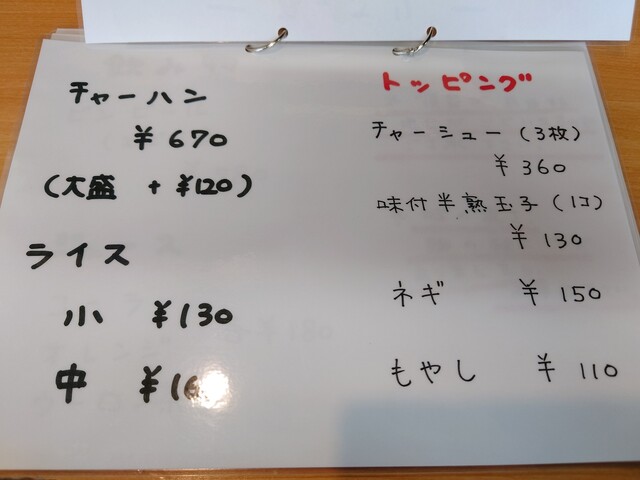 チャーハン
¥670
(大盛 + ¥120)
ライス
小 ¥130
中
トッピング
チャーシュー(3枚)
¥360
味付半熟玉子(1コ)
¥130
ネギ ¥150
もやし ¥110